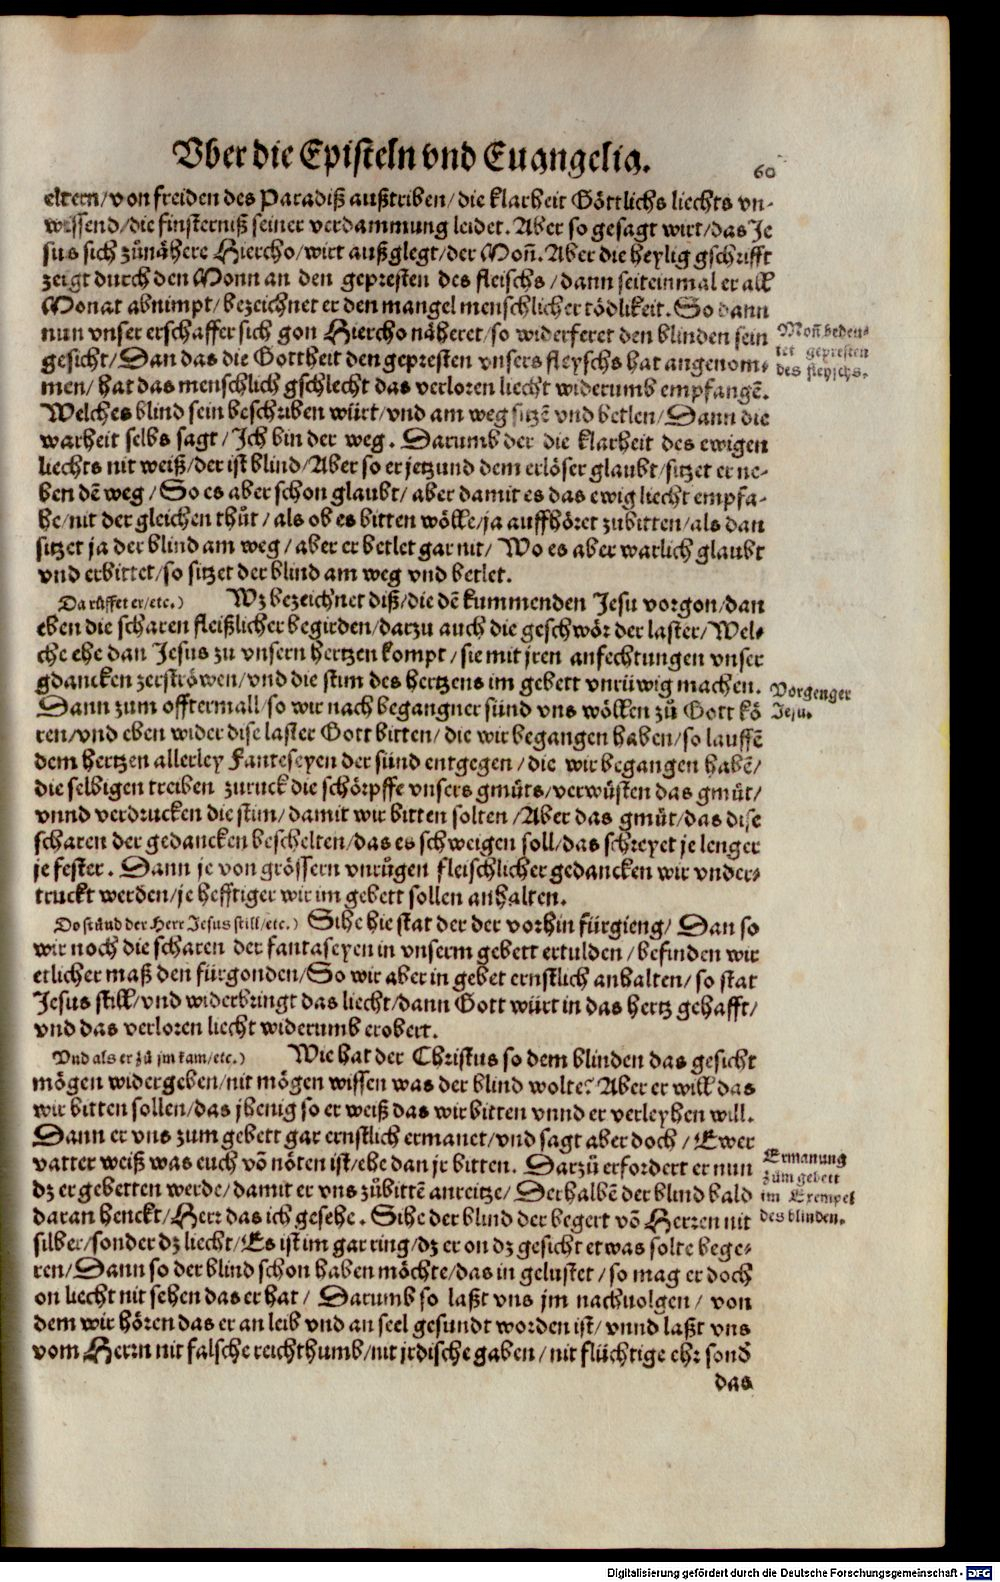 Vber die Episteln vnd Euangelia.
60
eltern/von freiden des Paradiß außtriben/die klarheit Göttlichs liechts vn-
wissend/die finsterniß seiner verdammung leidet. Aber so gesagt wirt/das Je
sus sich zůnähere Hiercho/wirt außglegt/der Mon̄. Aber die heylig gschrifft
zeigt durch den Monn an den gepresten des fleischs/dann seiteinmal er all
Monat abnimpt/bezeichnet er den mangel menschlicher tödlikeit. So dann
nun vnser erschaffer sich gon Hiercho näheret/so widerferet den blinden sein
gesicht/Dan das die Gottheit den gepresten vnsers fleyschs hat angenom-
men/hat das menschlich gschlecht das verloren liecht widerumb empfangē.
Welches blind sein beschriben würt/vnd am weg sitzē vnd betlen/Dann die
warheit selbs sagt/Ich bin der weg. Darumb der die klarheit des ewigen
liechts nit weiß/der ist blind/Aber so er jetzund dem erlöser glaubt/sitzet er ne-
ben dē weg/So es aber schon glaubt/aber damit es das ewig liecht empfa-
he/nit der gleichen thůt/als ob es bitten wölle/ja auffhöret zubitten/als dan
sitzet ja der blind am weg/aber er betlet gar nit/Wo es aber warlich glaubt
vnd erbittet/so sitzet der blind am weg vnd betlet.
Mon̄ beden-
tet gepresten
des fleyschs.
Da růffet er/etc.) Wz bezeichnet diß/die dē kummenden Jesu vorgon/dan
eben die scharen fleißlicher begirden/darzu auch die geschwör der laster/Wel-
che ehe dan Jesus zu vnsern hertzen kompt/sie mit jren anfechtungen vnser
gdancken zerströwen/vnd die stim des hertzens im gebett vnrüwig machen.
Dann zum offtermall/so wir nach begangner sünd vns wöllen zů Gott kö
ren/vnd eben wider dise laster Gott bitten/die wir begangen haben/so lauffē
dem hertzen allerley Fanteseyen der sünd entgegen/die wir begangen habē/
die selbigen treiben zuruck die schörpffe vnsers gmůts/verwüsten das gmůt/
vnnd verdrucken die stim/damit wir bitten solten/Aber das gmůt/das dise
scharen der gedancken beschelten/das es schweigen soll/das schreyet je lenger
je fester. Dann je von grössern vnrůgen fleischlicher gedancken wir vnder-
truckt werden/je hefftiger wir im gebett sollen anhalten.
Vorgenger
Jesu.
Do stůnd der Herr Jesus still/etc.) Sihe hie stat der der vorhin fürgieng/Dan so
wir noch die scharen der fantaseyen in vnserm gebett ertulden/befinden wir
etlicher maß den fürgonden/So wir aber in gebet ernstlich anhalten/so stat
Jesus still/vnd widerbringt das liecht/dann Gott würt in das hertz gehafft/
vnd das verloren liecht widerumb erobert.
Vnd als er zů jm kam/etc.) Wie hat der Christus so dem blinden das gesicht
mögen widergeben/nit mögen wissen was der blind wolte? Aber er will das
wir bitten sollen/das jhenig so er weiß das wir bitten vnnd er verleyhen will.
Dann er vns zum gebett gar ernstlich ermanet/vnd sagt aber doch/Ewer
vatter weiß was euch vō nöten ist/ehe dan jr bitten. Darzů erfordert er nun
dz er gebetten werde/damit er vns zůbittē anreitze/Derhalbē der blind bald
daran henckt/Herr das ich gesehe. Sihe der blind der begert vō Herren nit
silber/sonder dz liecht/Es ist im gar ring/dz er on dz gesicht etwas solte bege-
ren/Dann so der blind schon haben möchte/das in gelustet/so mag er doch
on liecht nit sehen das er hat/Darumb so laßt vns jm nachuolgen/von
dem wir hören das er an leib vnd an seel gesundt worden ist/vnnd laßt vns
vom Herrn nit falsche reichthumb/nit jrdische gaben/nit flüchtige ehr sond̄
Ermanung
zům gebett
im Exempel
des blinden.
das
Digitalisierung gefördert durch die Deutsche Forschungsgemeinschaft - DFG